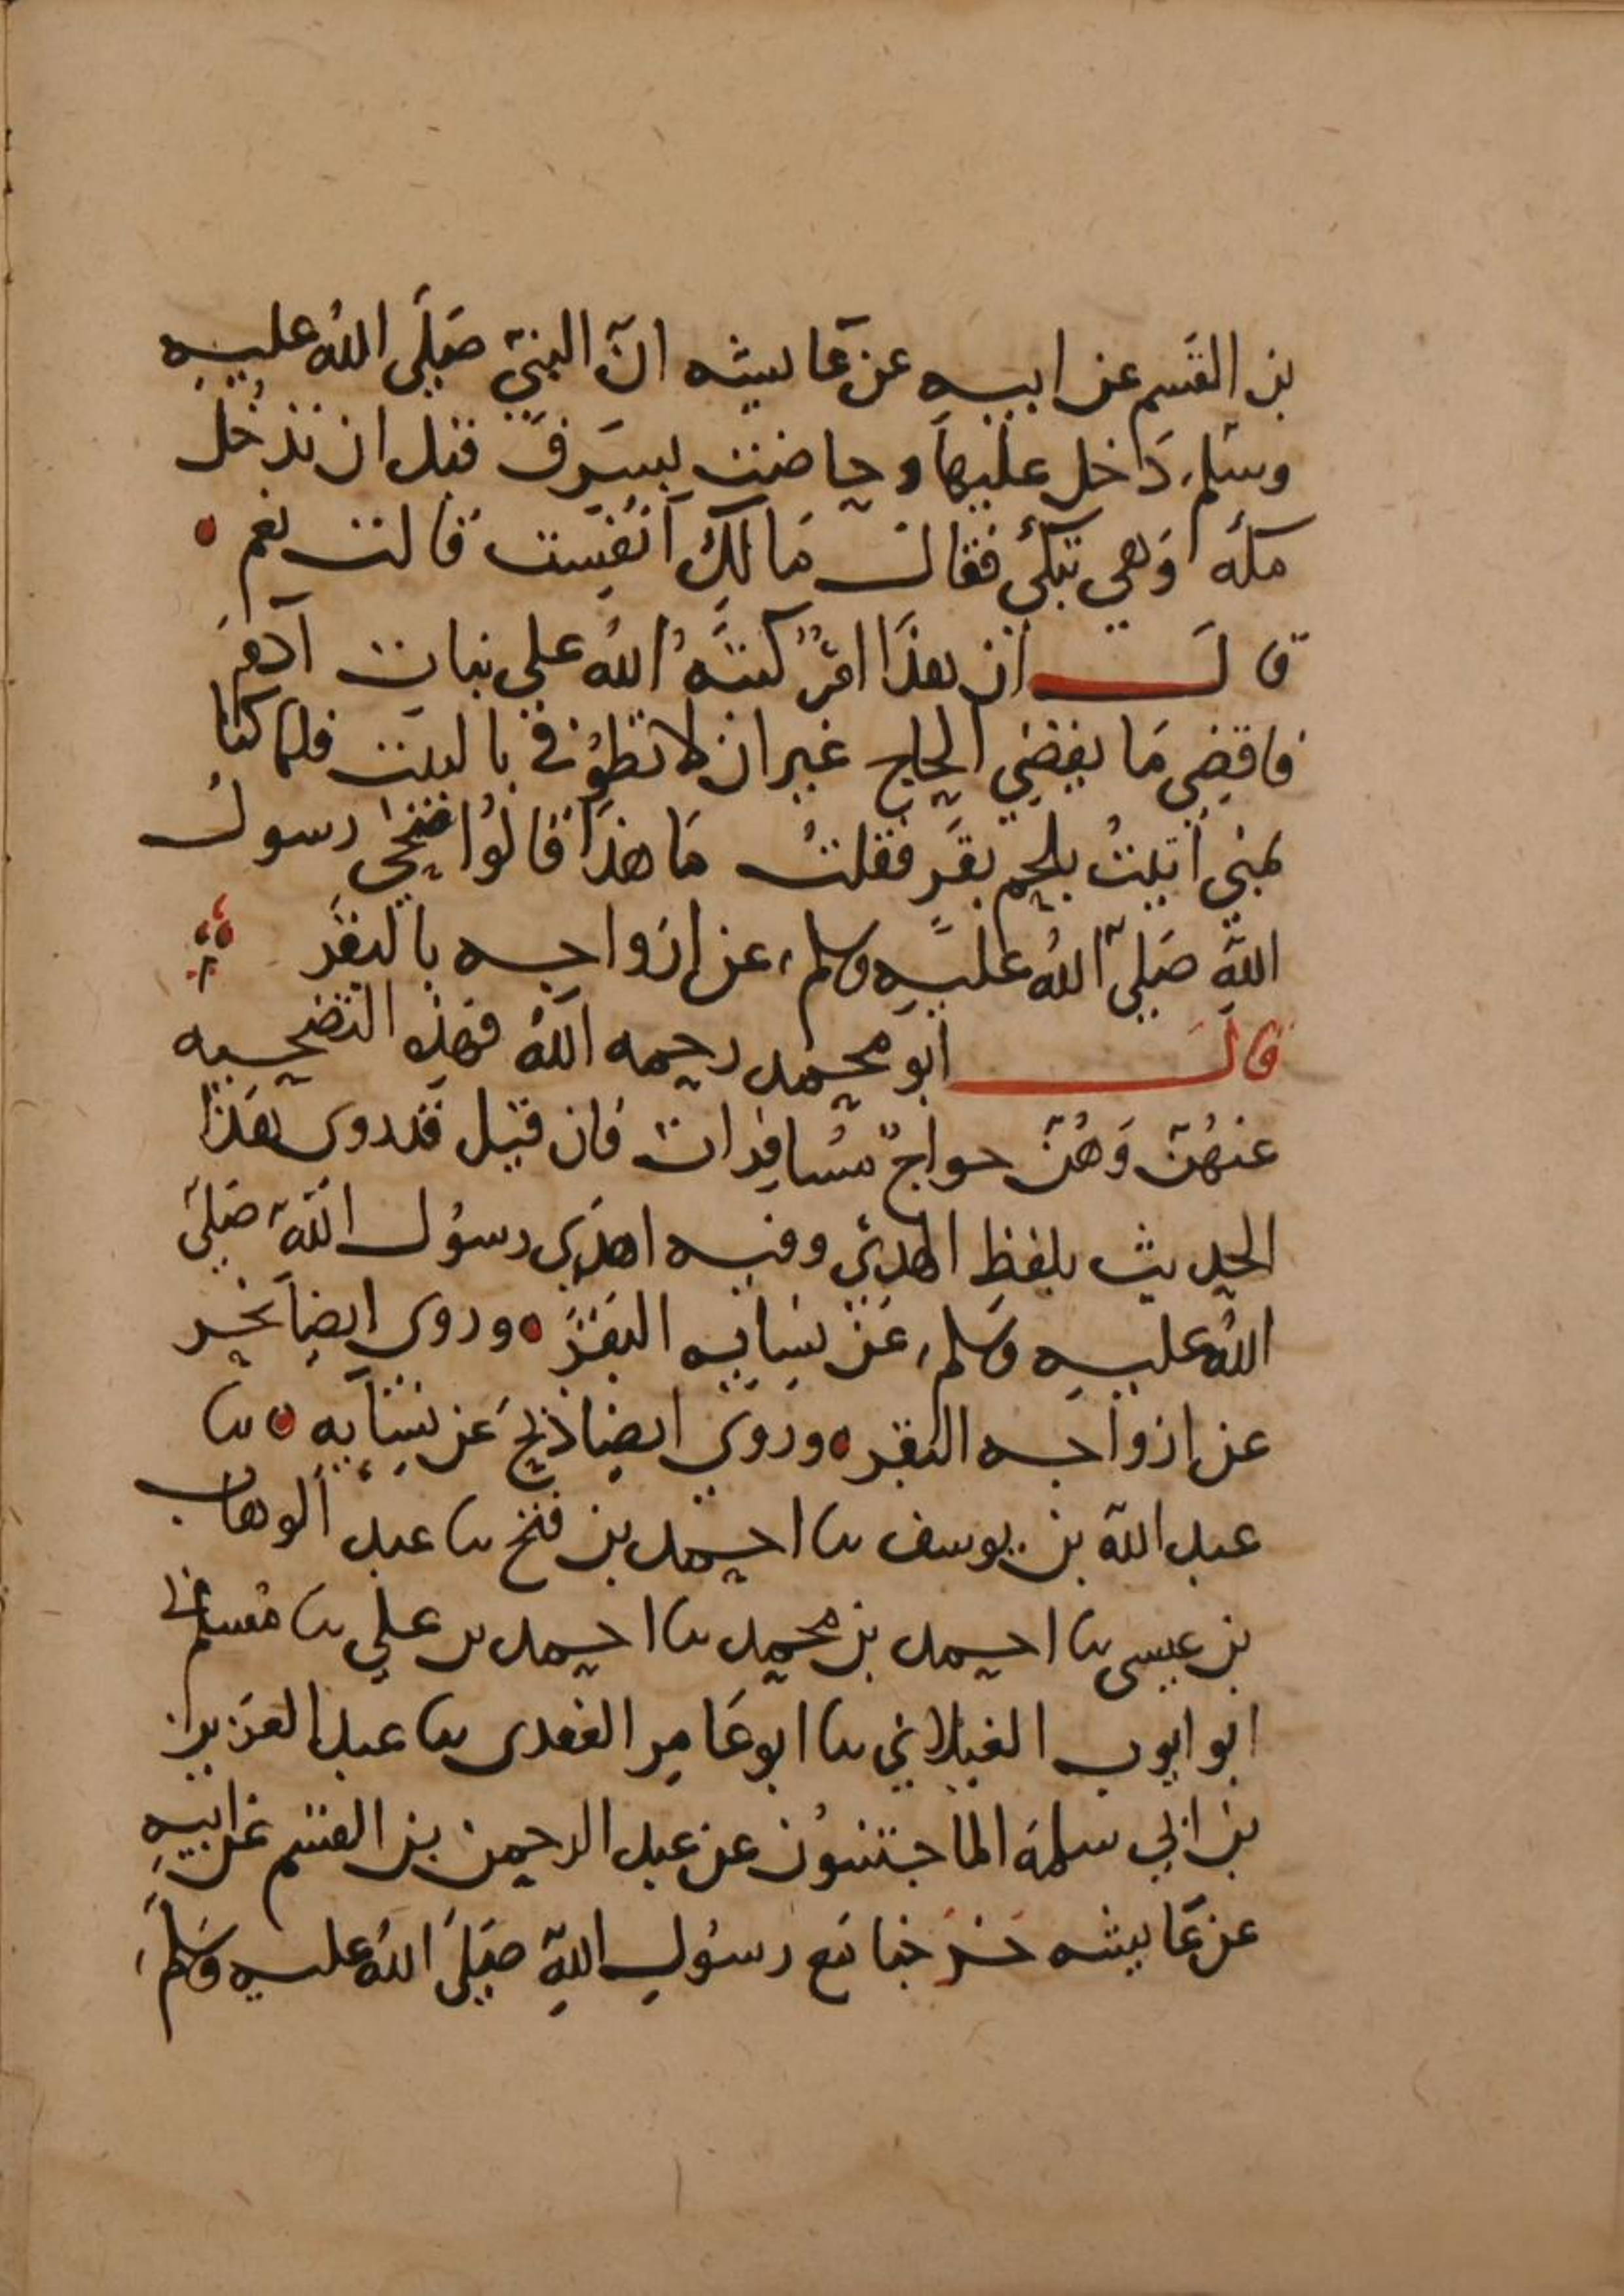 بن القسم عن ابيه عن عايشه انّ النبيّ صَلَّى اللهُ عليهِ
وسَلم دَخل عليهَا وحاضت بسَرِفَ قبل ان تدخُل
مكة وَهي تبكي فقال مَا لكِ أنَفِست قالت نعم
قال ان هذَا امرٌ كتبَهُ اللهُ على بنات آدمَ
فاقضِي مَا يقضِي الحاج غير ان لا تطوُفي بالبيت فلما كنا
بمنى اُتيتُ بلحم بقَرٍ فقلتُ مَا هذَا قالوُا ضحى رسول
اللهِ صَلى اللهُ عليهِ وسلم عن ازواجه بالبقَر
قال ابو محمد رحمه اللهُ فهذه التضحيه
عنهُنّ وَهُنّ حواجٌ مُسَافِرات فان قيل قد روى هذَا
الحديث بلفظ الهدي وفيه اهدَى رسُول اللهِ صَلى
اللهُ عليهِ وسَلم عَن نِسَايِه البَقَرَ وروى ايضاً نحر
عن ازواجه البقر ورَوى ايضا ذبحَ عَن نِسَآيِه نا
عبد الله بن يوسف نا احمد بن فتح نا عبد الوهاب
بن عيسى نا احمد بن محمد نا احمد بن على نا مُسلم نا
ابو ايوب الغيلاني نا ابو عَامِر العقدى نا عبد العَزيز
بن ابي سلمة الماجشُون عن عبد الرحمن بن القسم عن ابيهِ
عن عَايشه خَرَجنا مَع رسُولِ اللهِ صَلَى اللهُ عليه وَسَلمَ